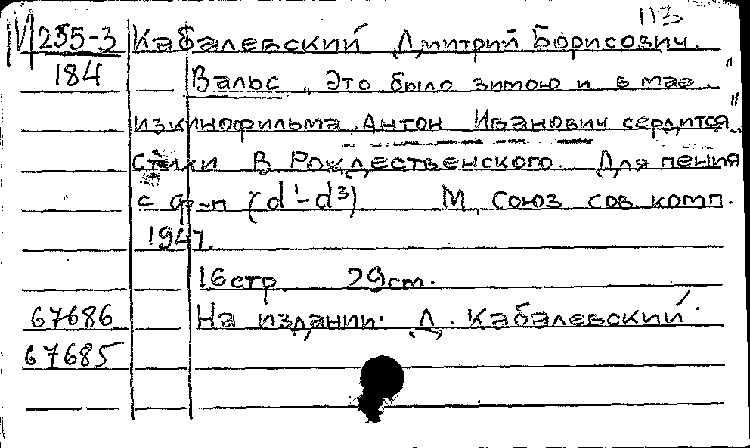 113
М 255-3 Кабалевский Дмитрий Борисович.
184 Вальс „Это было зимою и в мае"
из кинофильма „Антон Иванович сердится"
Стихи В. Рождественского. Для пения
с ф-п (d¹-d³) М, Союз сов комп.
1947.
16 стр. 29 см.
67686 На издании: Д. Кабалевский.
67685